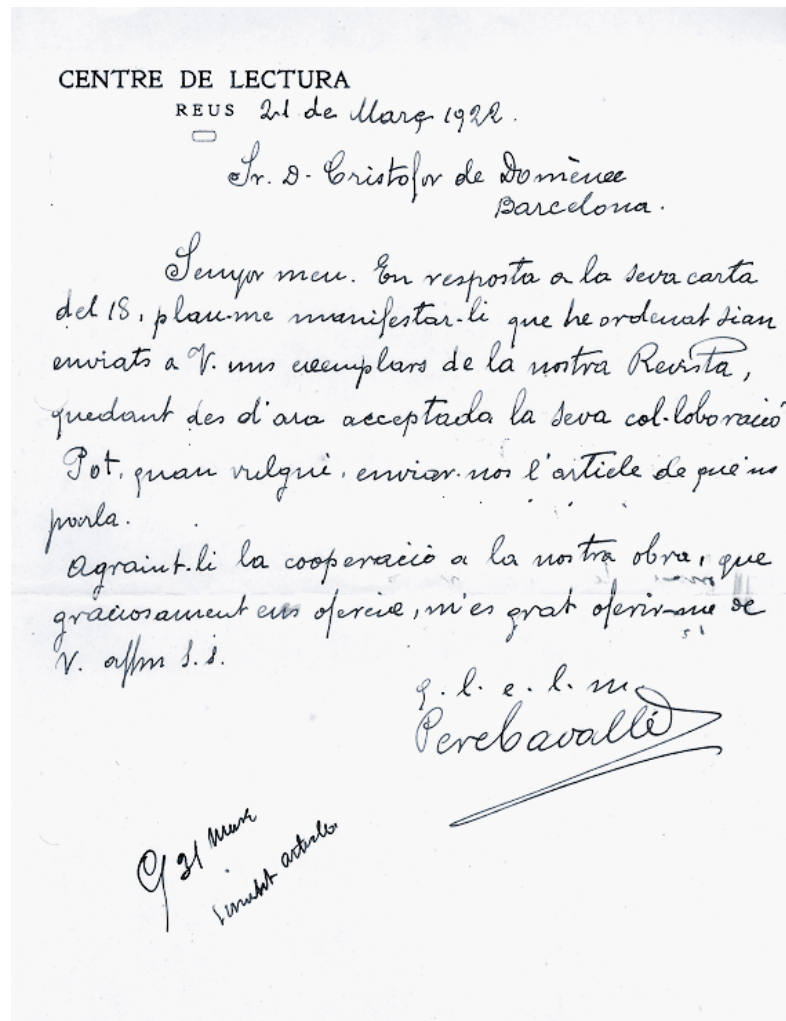 CENTRE DE LECTURA
REUS 21 de Març 1922.
Sr. D. Cristofor de Domènec
Barcelona.
Senyor meu. En resposta a la seva carta
del 18, plau-me manifestar-li que he ordenat sian
enviats a V. uns exemplars de la nostra Revista,
quedant des d'ara acceptada la seva col·loboració
Pot, quan vulgui, enviar-nos l'article de què'ns
parla.
Agraint-li la cooperació a la nostra obra, que
graciosament ens ofereix, m'es grat oferir-me de
V. affm s.s.
q. l. e. l. m.
Pere Cavallé
31 Març
article